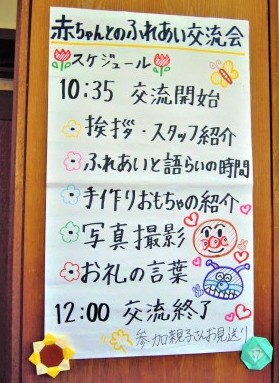 赤ちゃんとのふれあい交流会
スケジュール
10:35 交流開始
挨拶・スタッフ紹介
ふれあいと語らいの時間
手作りおもちゃの紹介
写真撮影
お礼の言葉
12:00 交流終了
参加親子さんお見送り